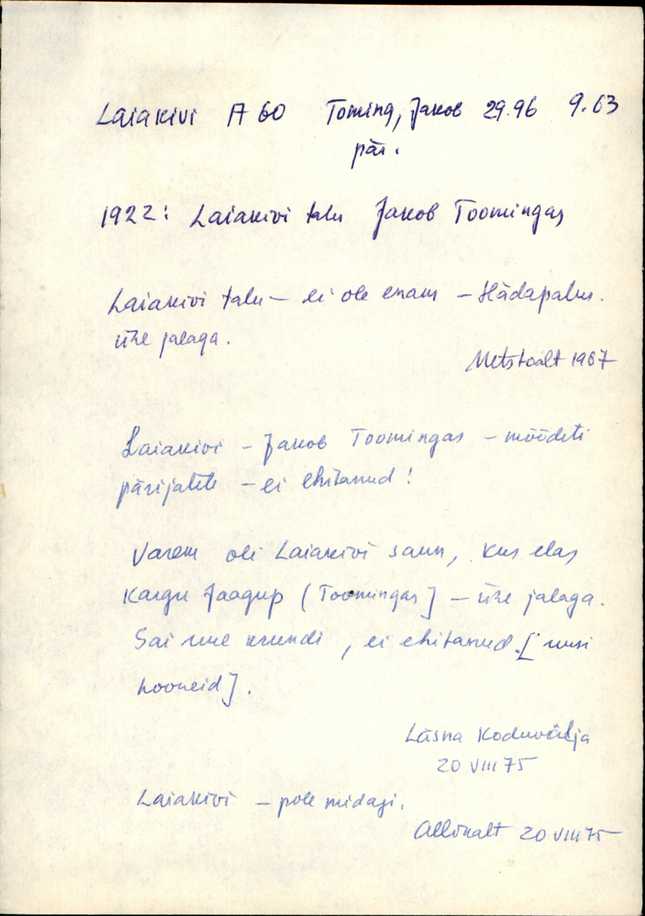 Laiakivi A 60 Toming, Jakob 29.96 9.63
pär.
1922: Laiakivi talu Jakob Toomingas
Laiakivi talu – ei ole enam – Hädapalu.
ühe jalaga.
Metstaalt 1967
Laiakivi – Jakob Toomingas – mõõdeti
pärijatele – ei ehitanud!
Varem oli Laiakivi saun, kus elas
Kargu Jaagup (Toomingas] – ühe jalaga.
Sai uue krundi, ei ehitanud. [uusi
hooneid].
Läsna Koduvälja
20 VIII 75
Laiakivi – pole midagi.
20 VIII 75